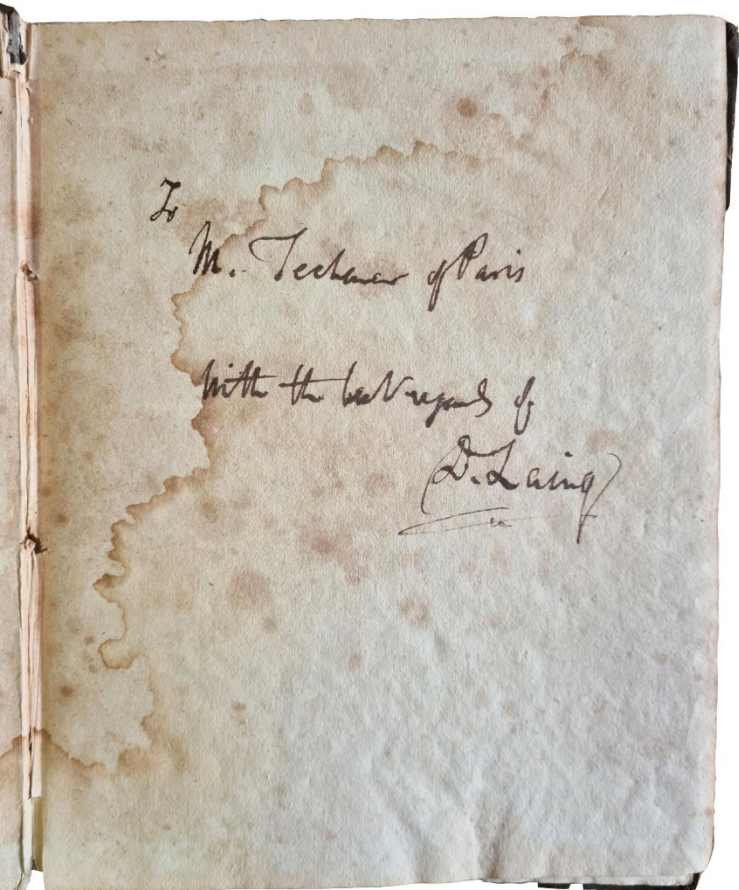 To
M. Techener of Paris
With the best regards of
D. Laing